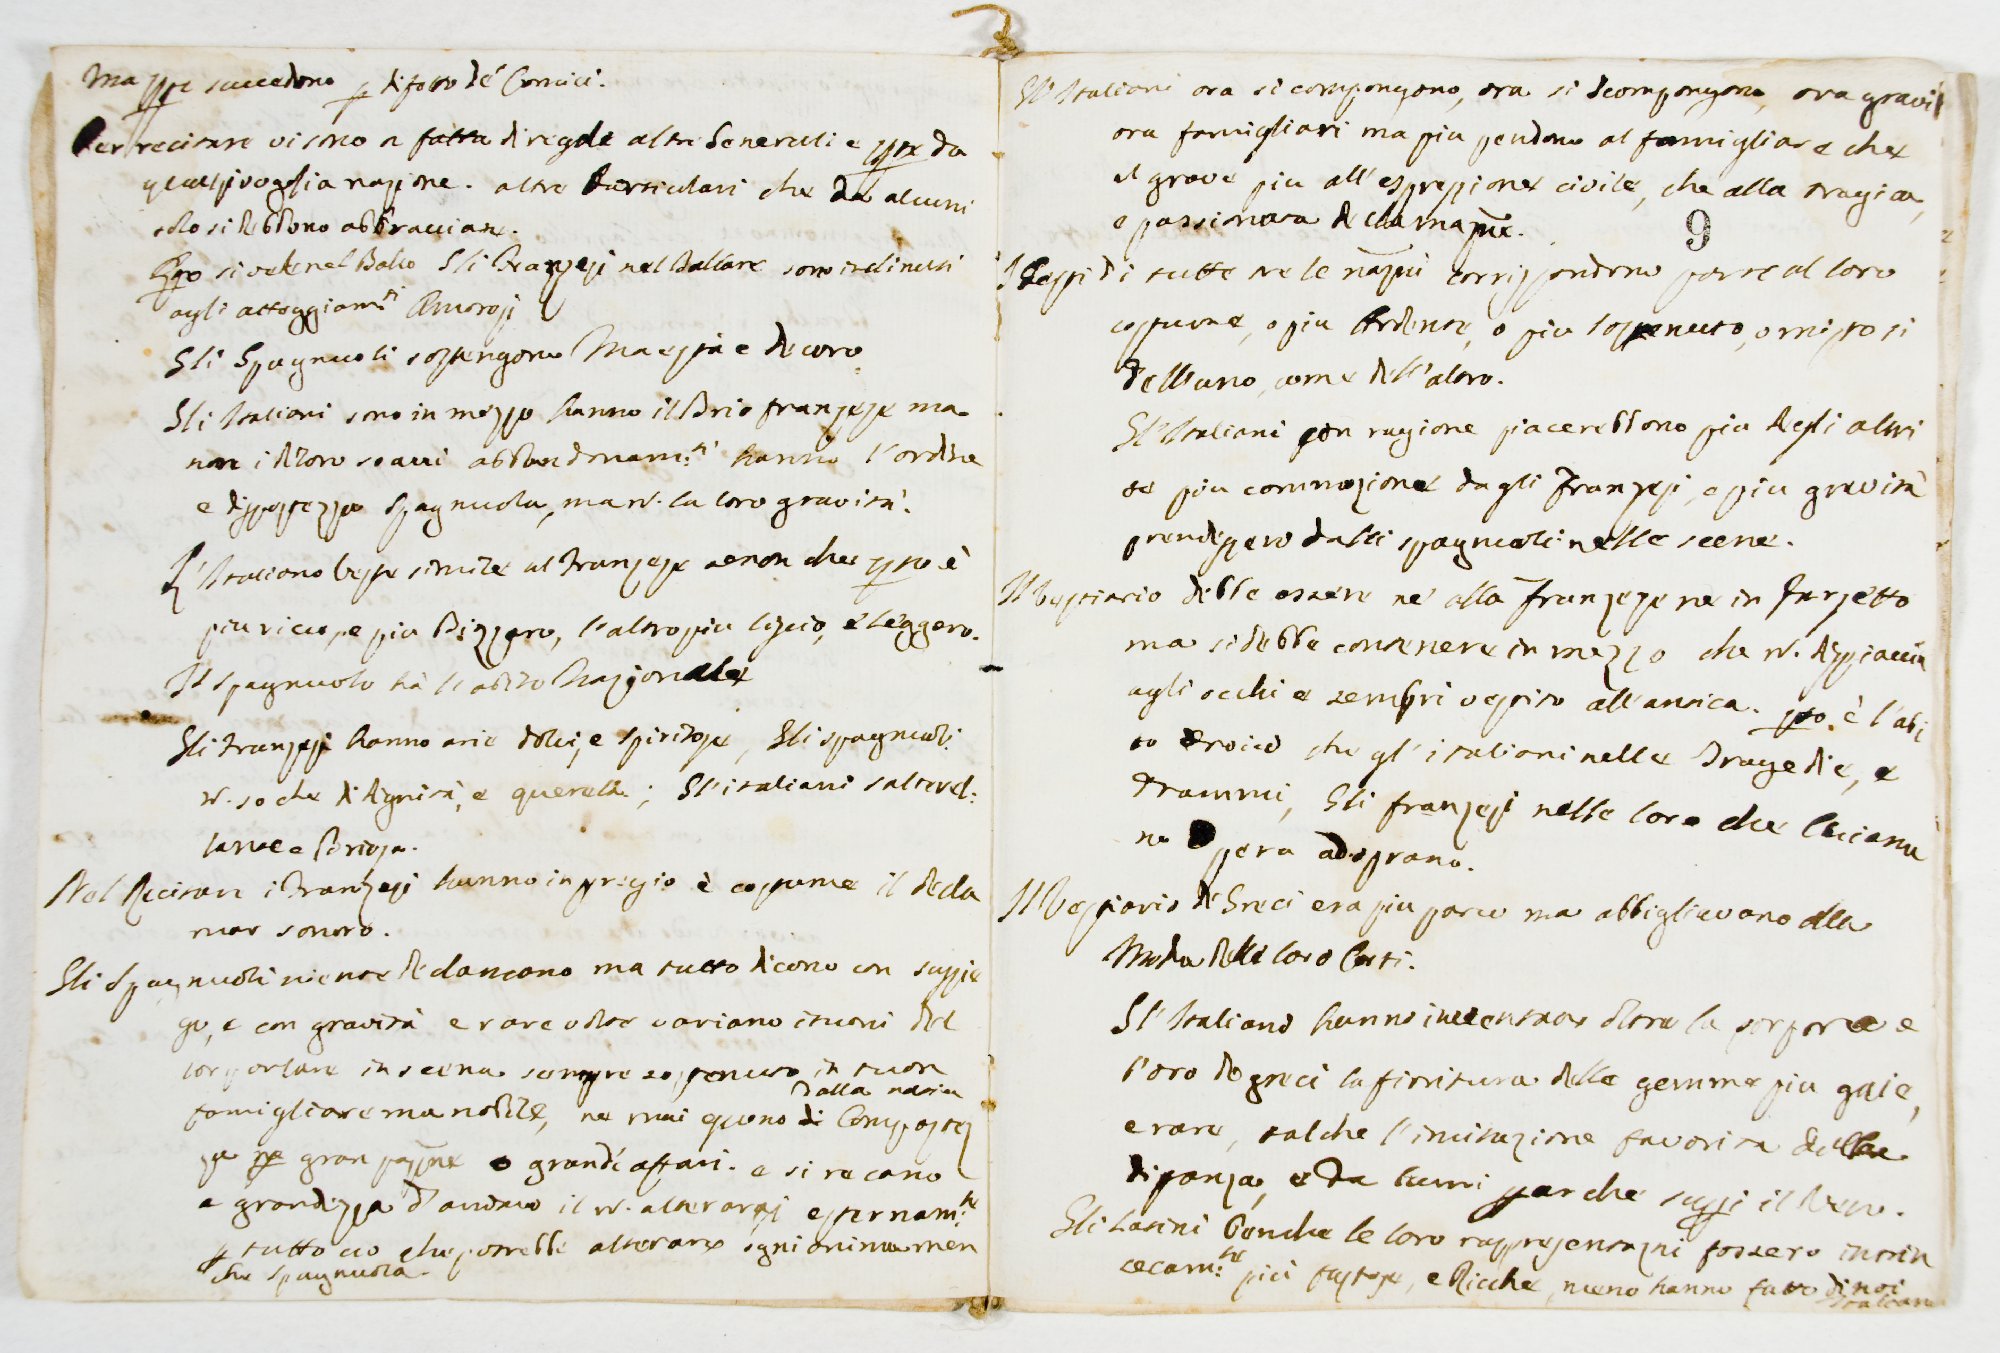 Ma spe succedono p difetto de' Comici.
Per recitare vi sono a fatta di regole altre Generali e spe da
qualsivoglia nazione. altre Particulari che da alcuni
solo si debbono abbracciare.
si vede nel Ballo Gli Franzesi nel Ballare sono inclinati
agli atteggiam.ti Amorosi
Gli Spagnuoli sostengono Maestà e decoro.
Gli Italiani sono in mezzo hanno il Brio franzese ma
non i di loro soavi abbandonam.ti hanno l'ordine
e dispostezza Spagnuola, ma n. la loro gravità.
L'Italiano veste simile al Franzese se non che è
piu ricco, e piu Bizzaro, l'altro piu liscio, e leggero.
Il Spagnuolo hà l'abito Nazionale
Gli Franzesi hanno arie dolci, e spiritose, Gli spagnuoli
n. so che di dignità, e querela; Gl'italiani salterel:
lante e Briosa.
Nel Recitare i Franzesi hanno in pregio è costume il decla
mar sonoro.
Gli Spagnuoli niente declamano ma tutto dicono con sussie
go, e con gravità e rare volte variano i tuoni del
lor parlare in scena sempre sostenuto in tuon
famigliare ma nobile, ne mai escono di dalla natia Compostez
za gran passione o grandi affari. e si recano
a grandezza d'animo il n. alterarsi esternam.te
p tutto cio che potrebbe alterare ogni animo men
che spagnuola.
Gl'Italiani ora si compongono, ora si scompongono, ora gravi
ora famigliari ma piu pendono al famigliare che
al grave piu all'espressione civile, che alla tragica,
e passionata declamazione.
9
I Gesti di tutte tre le nazioni corrispondono forse al loro
costume, o piu Ardente, o piu sostenuto, o misto si
dell'uno, come dell'altro.
Gl'Italiani con ragione piacerebbono piu degli altri
se piu commozione dagli Franzesi, e piu gravità
prendessero dalli spagnuoli nelle scene.
Il vestiario debbe essere ne' alla Franzese ne in Farsetto
ma si debbe contenere in mezzo che n. dispiaccia
agli occhi e sembri vestito all'antica. è l'abi
to eroico che gl'italiani nelle Tragedie, e
Drammi, Gli franzesi nelle loro che chiama
no Opera adoprano.
Il Vestiario de Greci era piu parco ma abbigliavano alla
Moda delle loro Corti.
Gl'Italiano hanno inventato oltra la porpora e
l'oro de greci la fioritura delle gemme piu gaie,
e rare, talche l'imitazione favorita della
distanza, e da lumi par che sussi il Vero.
Gli Latini Benche le loro rappresentazni fossero intrin
secam.te piu fastose, e Ricche, meno hanno fatto di noi
Italiani